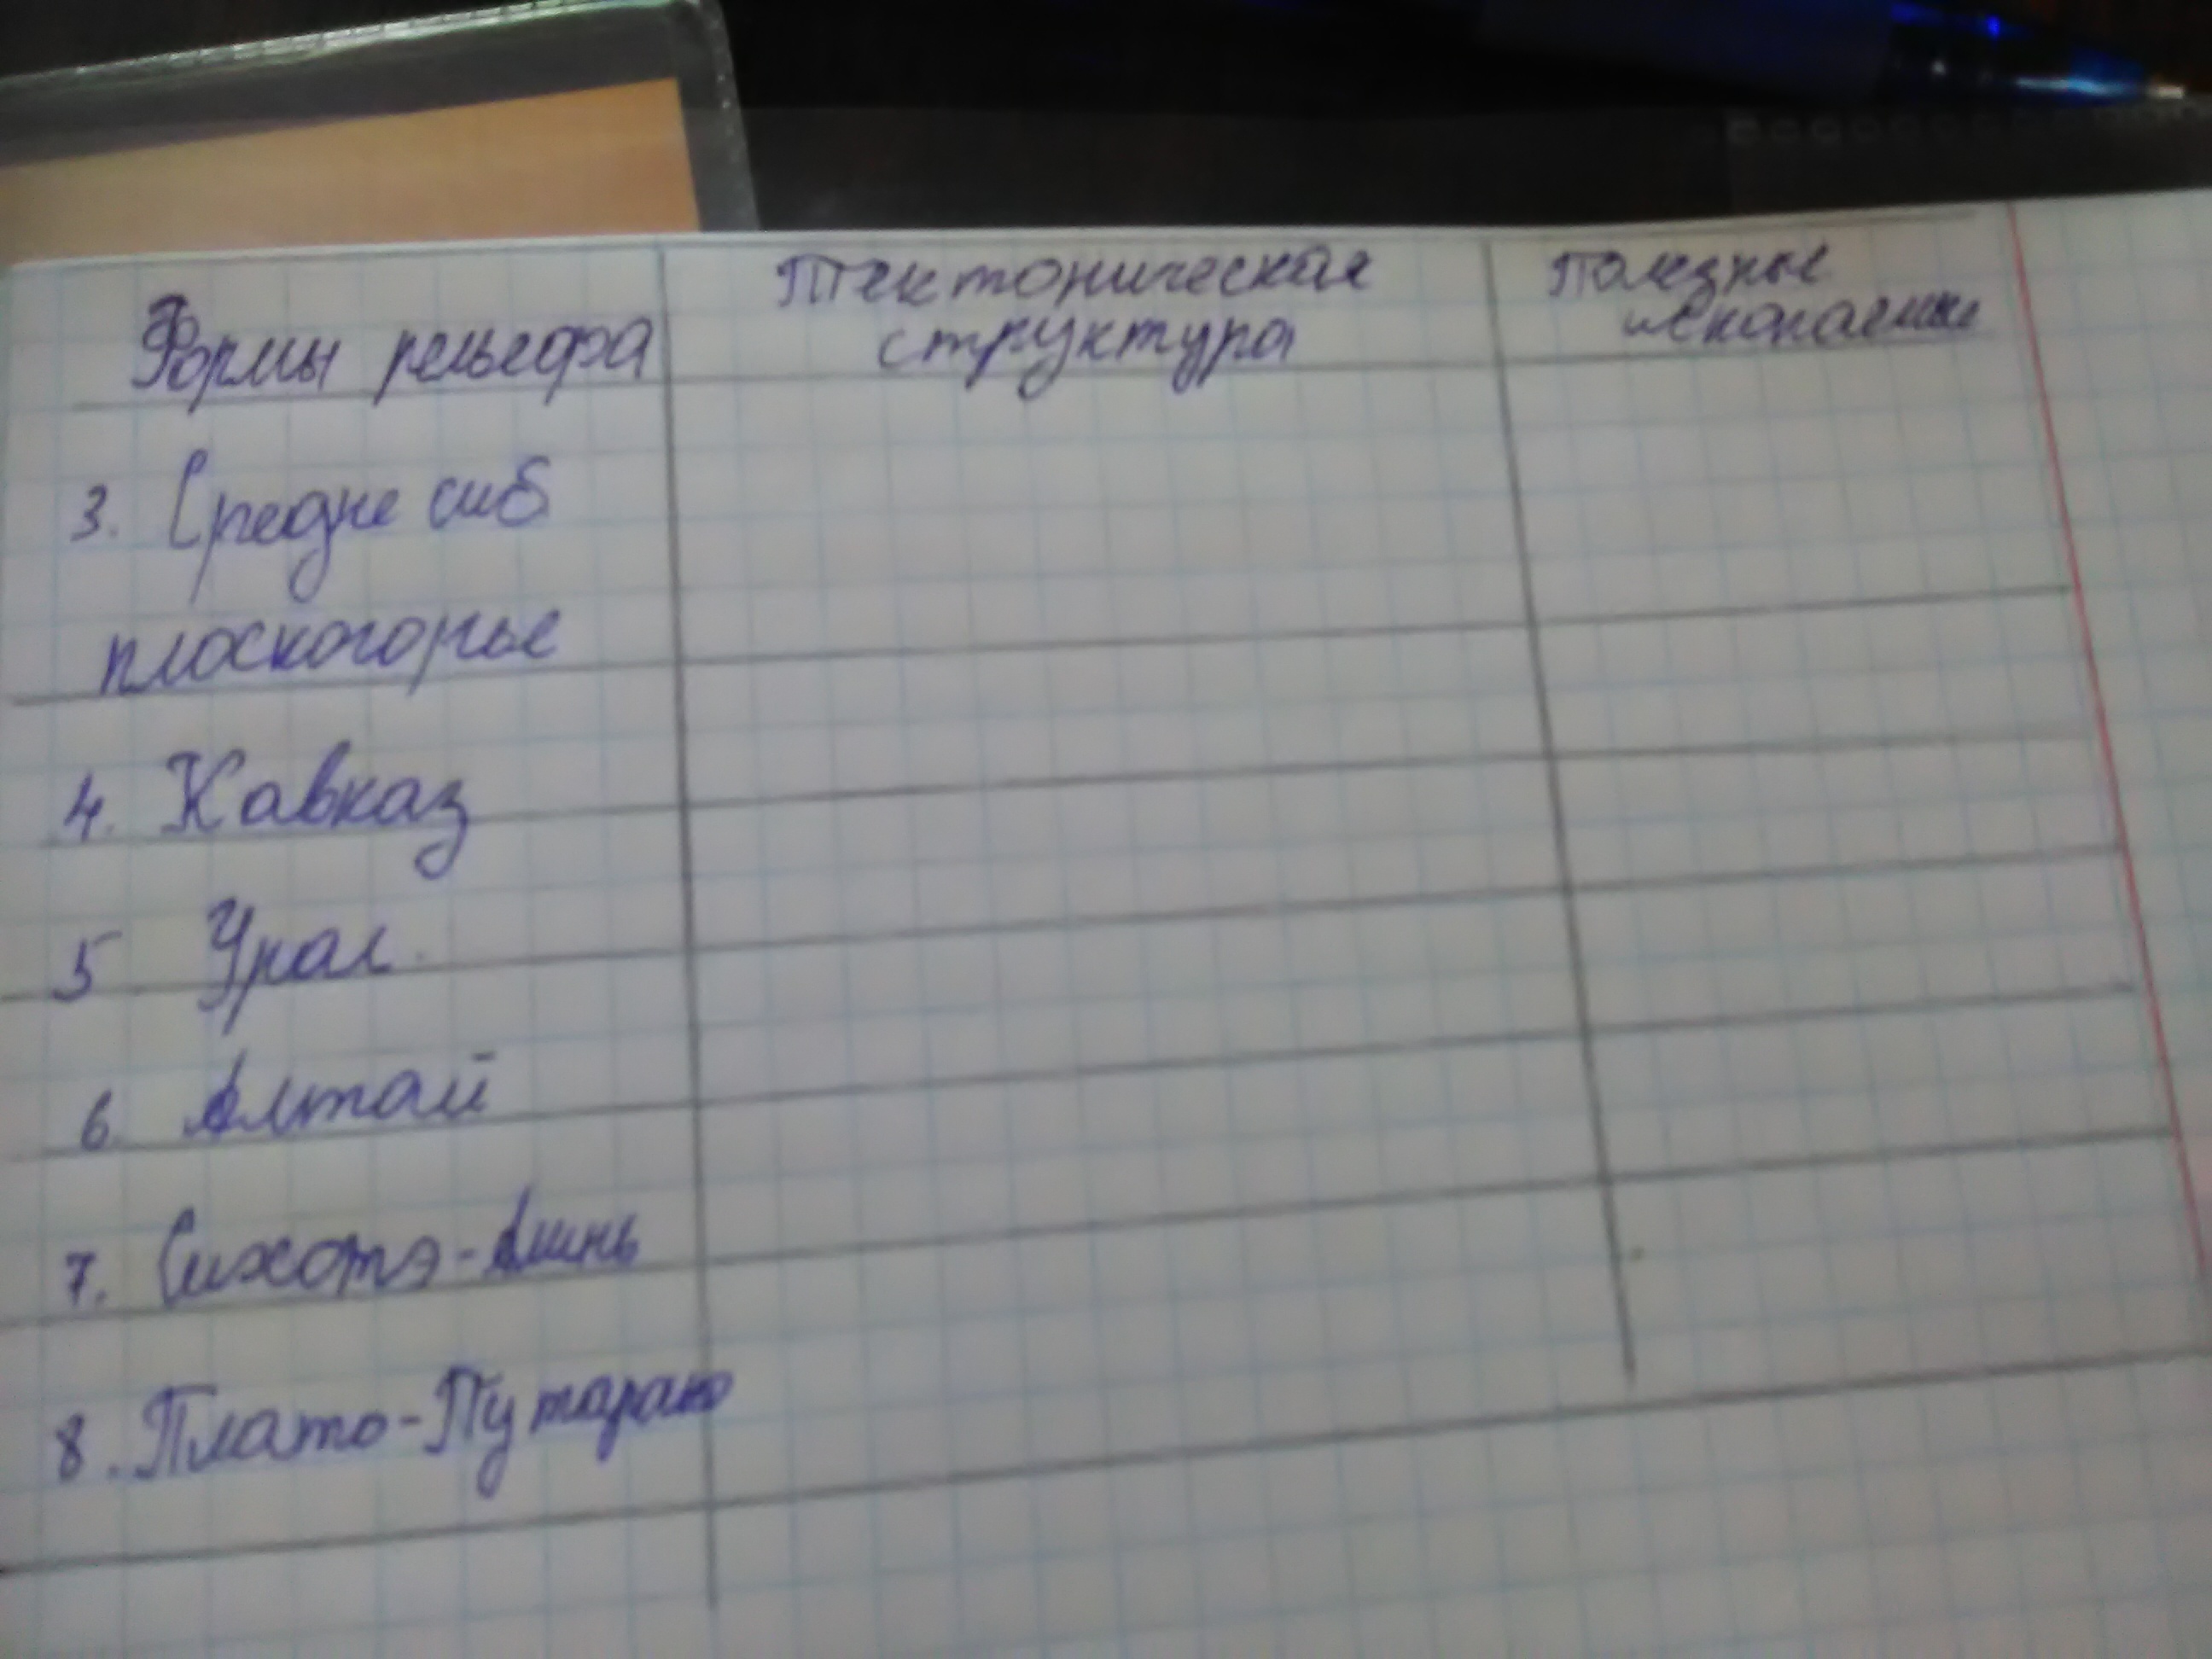 Формы рельефа
Тектоническая
структура
Полезные
ископаемые
3. Средне сиб
плоскогорье
4. Кавказ
5 Урал.
6. Алтай
7. Сихотэ-Алинь
8. Плато-Путорано